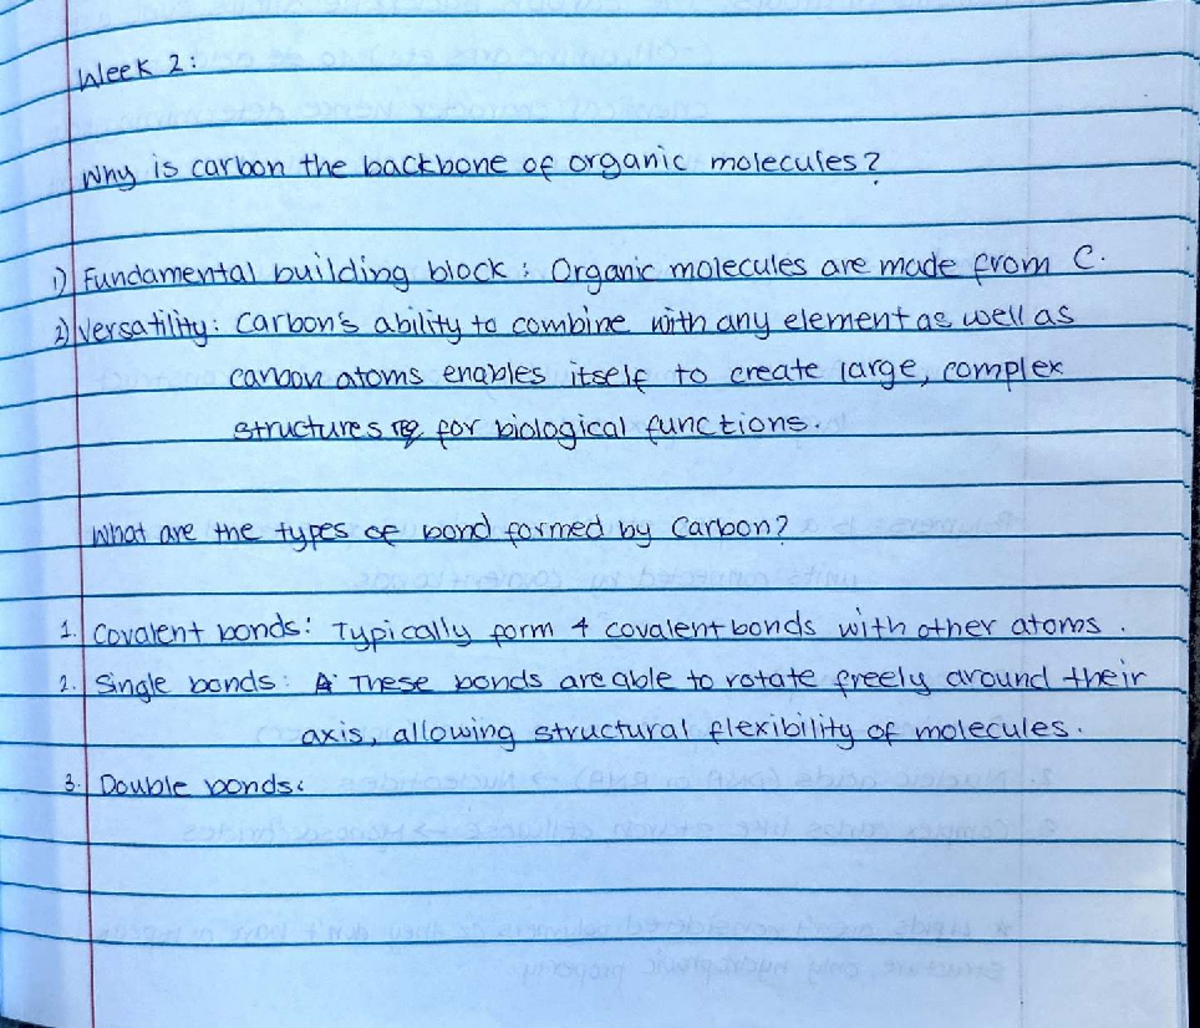 Week 2:
Why is carbon the backbone of organic molecules?
1) Fundamental building block: Organic molecules are made from C.
2) Versatility: Carbon's ability to combine with any element as well as
carbon atoms enables itself to create large, complex
structures for biological functions.
What are the types of bond formed by Carbon?
1. Covalent bonds: Typically form 4 covalent bonds with other atoms.
2. Single bonds: These bonds are able to rotate freely around their
axis, allowing structural flexibility of molecules.
3. Double bonds: